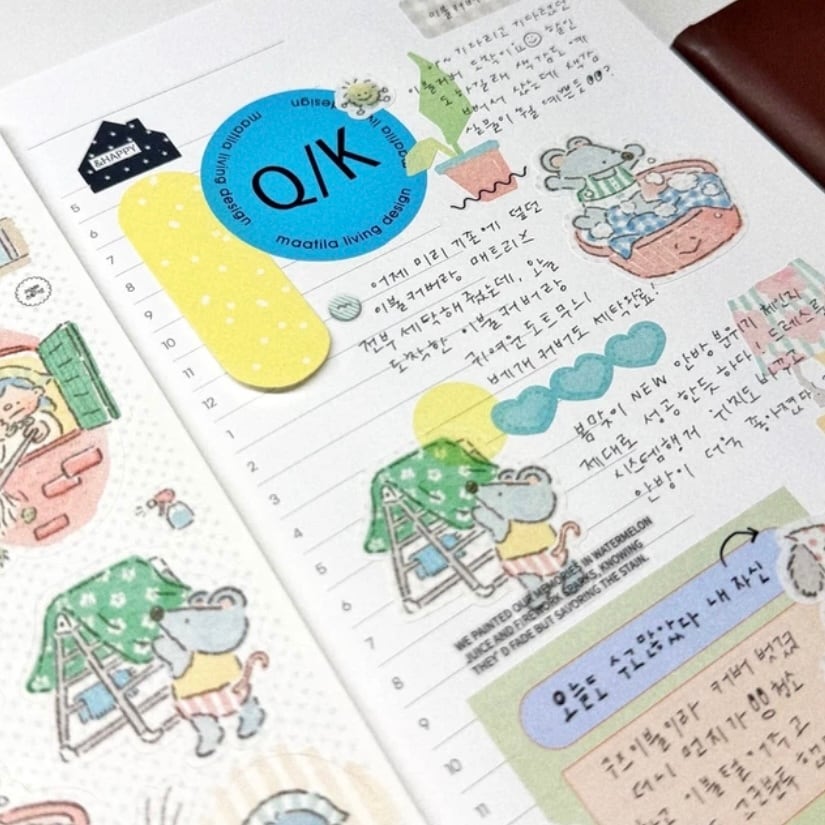 이불커버
기다리고 기다렸던
이불커버 도착이요
&HAPPY
maatila living design
Q/K
maatila living design
5
6
7
8
9
10
11
12
1
2
3
4
5
6
7
8
9
10
11
어제 미리 기존에 덮던
이불커버랑 매트리스
전부 세탁해줬는데, 오늘
도착한 이불커버랑
귀여운 도트무늬
베개 커버도 세탁완료!
봄맞이 NEW 안방 분위기 체인지
제대로 성공한듯하다! 드레스룸
시스템행거 위치도 바꾸고
안방이 더욱 좋아졌다
WE PAINTED OUR MEMORIES IN WATERMELON
JUICE AND FIREWORK SPARKS, KNOWING
THEY'D FADE BUT SAVORING THE STAIN.
오늘도 수고많았다 내 자신
구스이불이라 커버 벗겼
더니 먼지가 청소
하고 이불털기주고